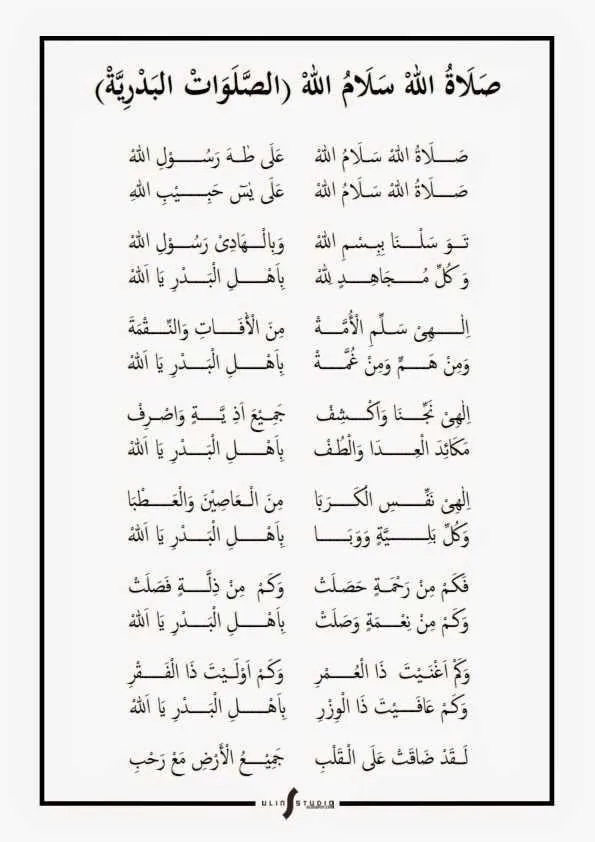 صَلَاةُ اللهْ سَلَامُ اللهْ (الصَّلَوَاتْ البَدْرِيَّةْ)
صَلَاةُ اللهْ سَلَامُ اللهْ عَلَى طٰهَ رَسُوْلِ اللهْ
صَلَاةُ اللهْ سَلَامُ اللهْ عَلَى يٰسٓ حَبِيْبِ اللهِ
تَوَ سَلْنَا بِبِسْمِ اللهْ وَبِالْهَادِىْ رَسُوْلِ اللهْ
وَكُلِّ مُجَاهِدٍ لِلهْ بِاَهْلِ الْبَدْرِ يَا اَللهْ
اِلٰهِىْ سَلِّمِ الْأُمَّةْ مِنَ الْأَفَاتِ وَالنِّقْمَةَ
وَمِنْ هَمٍّ وَمِنْ غُمَّةْ بِاَهْلِ الْبَدْرِ يَا اَللهْ
اِلٰهِىْ نَجِّنَا وَاَكْشِفْ جَمِيْعَ اَذِ يَّةٍ وَاصْرِفْ
مَكَائِدَ الْعِدَا وَالْطُفْ بِاَهْلِ الْبَدْرِ يَا اَللهْ
اِلٰهِىْ نَفِّسِ الْكَرَبَا مِنَ الْعَاصِيْنَ وَالْعَطْبَا
وَكُلِّ بَلِيَّةٍ وَوَبَا بِاَهْلِ الْبَدْرِ يَا اَللهْ
فَكَمْ مِنْ رَحْمَةٍ حَصَلَتْ وَكَمْ مِنْ ذِلَّةٍ فَصَلَتْ
وَكَمْ مِنْ نِعْمَةٍ وَصَلَتْ بِاَهْلِ الْبَدْرِ يَا اَللهْ
وَكَمْ اَغْنَيْتَ ذَا الْعُمْرِ وَكَمْ اَوْلَيْتَ ذَا الْفَقْرِ
وَكَمْ عَافَيْتَ ذَا الْوِزْرِ بِاَهْلِ الْبَدْرِ يَا اَللهْ
لَقَدْ ضَاقَتْ عَلَى الْقَلْبِ جَمِيْعُ الْأَرْضِ مَعْ رَحْبِ
ULIN STUDIO